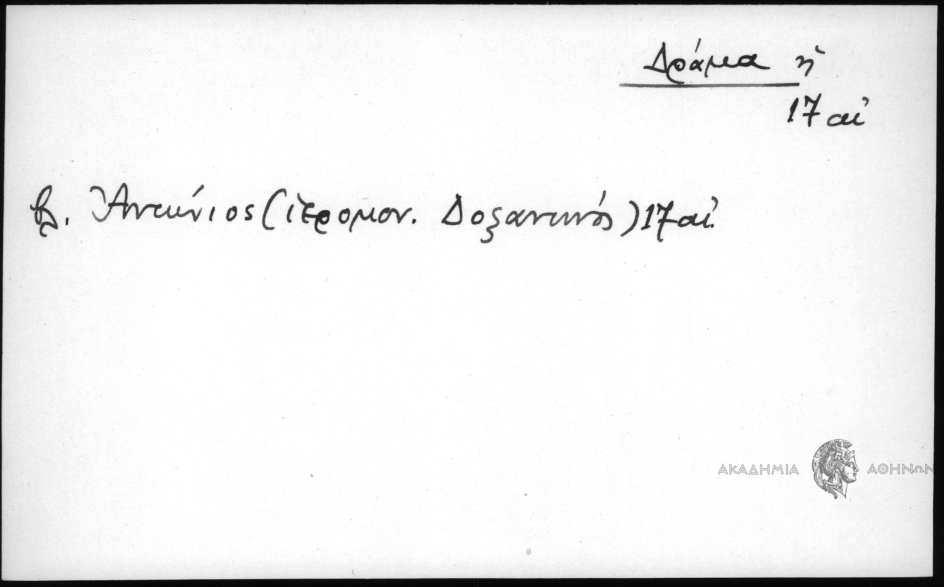 Δράμα ἡ
17 αἰ
βλ. Ἀντώνιος (ἱερομον. Δοξαντινός) 17 αἰ.
ΑΚΑΔΗΜΙΑ ΑΘΗΝΩΝ